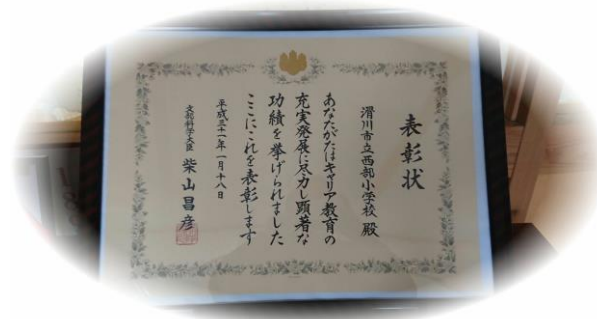 表彰状
滑川市立西部小学校 殿
あなたがたはキャリア教育の
充実発展に尽力し顕著な
功績を挙げられました
ここにこれを表彰します
平成三十一年一月十八日
文部科学大臣 柴山昌彦